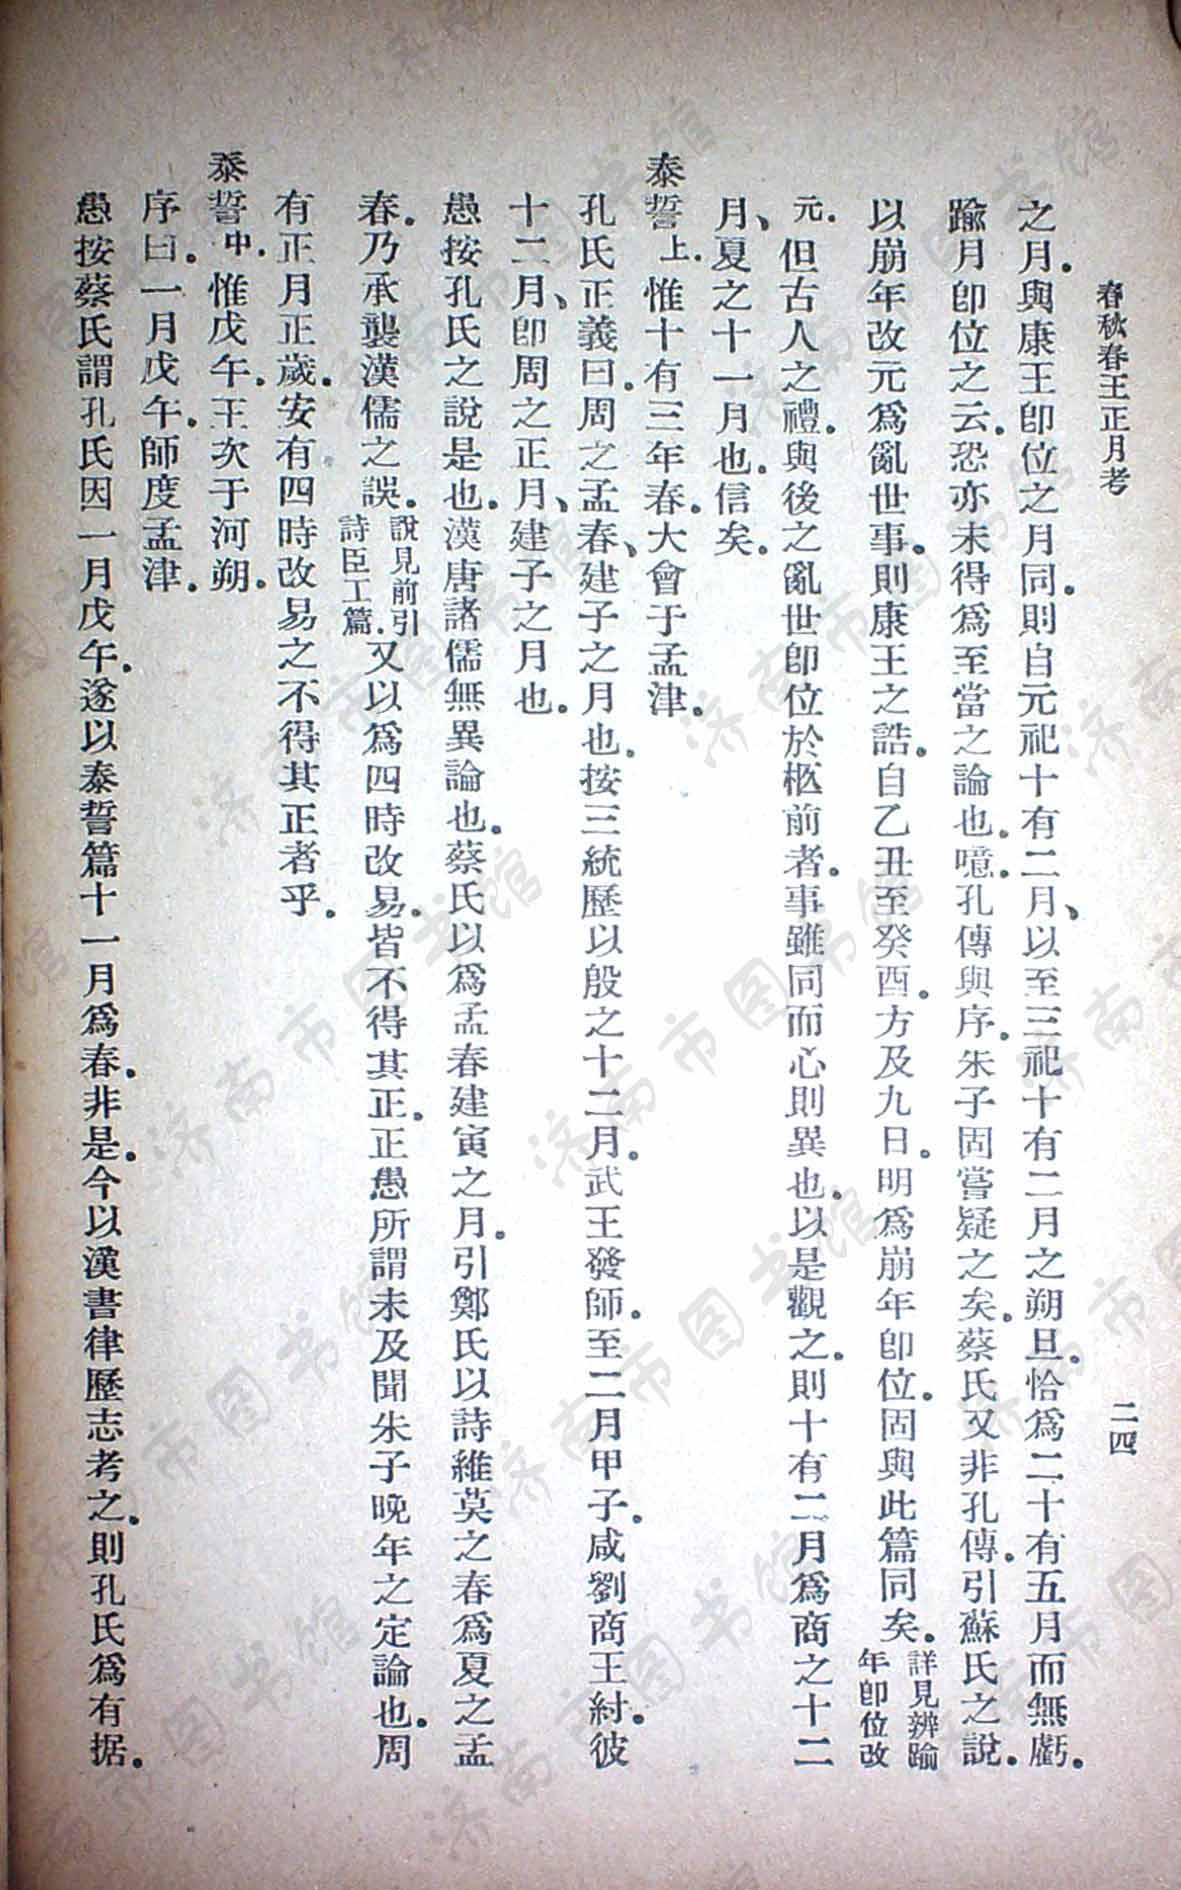 春秋春王正月考　二四
之月。與康王卽位之月同。則自元祀十有二月、以至三祀十有二月之朔旦。恰爲二十有五月而無虧。
踰月卽位之云。恐亦未得爲至當之論也。噫。孔傳與序。朱子固嘗疑之矣。蔡氏又非孔傳。引蘇氏之說。
以崩年改元爲亂世事。則康王之誥。自乙丑至癸酉。方及九日。明爲崩年卽位。固與此篇同矣。詳見辨踰年卽位改
元。但古人之禮。與後之亂世卽位於柩前者。事雖同而心則異也。以是觀之。則十有二月爲商之十二
月、夏之十一月也。信矣。
泰誓上。惟十有三年春。大會于孟津。
孔氏正義曰。周之孟春、建子之月也。按三統歷以殷之十二月。武王發師。至二月甲子。咸劉商王紂。彼
十二月、卽周之正月、建子之月也。
愚按孔氏之說是也。漢唐諸儒無異論也。蔡氏以爲孟春建寅之月。引鄭氏以詩維莫之春爲夏之孟
春。乃承襲漢儒之誤。說見前引詩臣工篇。又以爲四時改易。皆不得其正。正愚所謂未及聞朱子晚年之定論也。周
有正月正歲。安有四時改易之不得其正者乎。
泰誓中。惟戊午。王次于河朔。
序曰。一月戊午。師度孟津。
愚按蔡氏謂孔氏因一月戊午。遂以泰誓篇十一月爲春。非是。今以漢書律歷志考之。則孔氏爲有据。
济南市图书馆